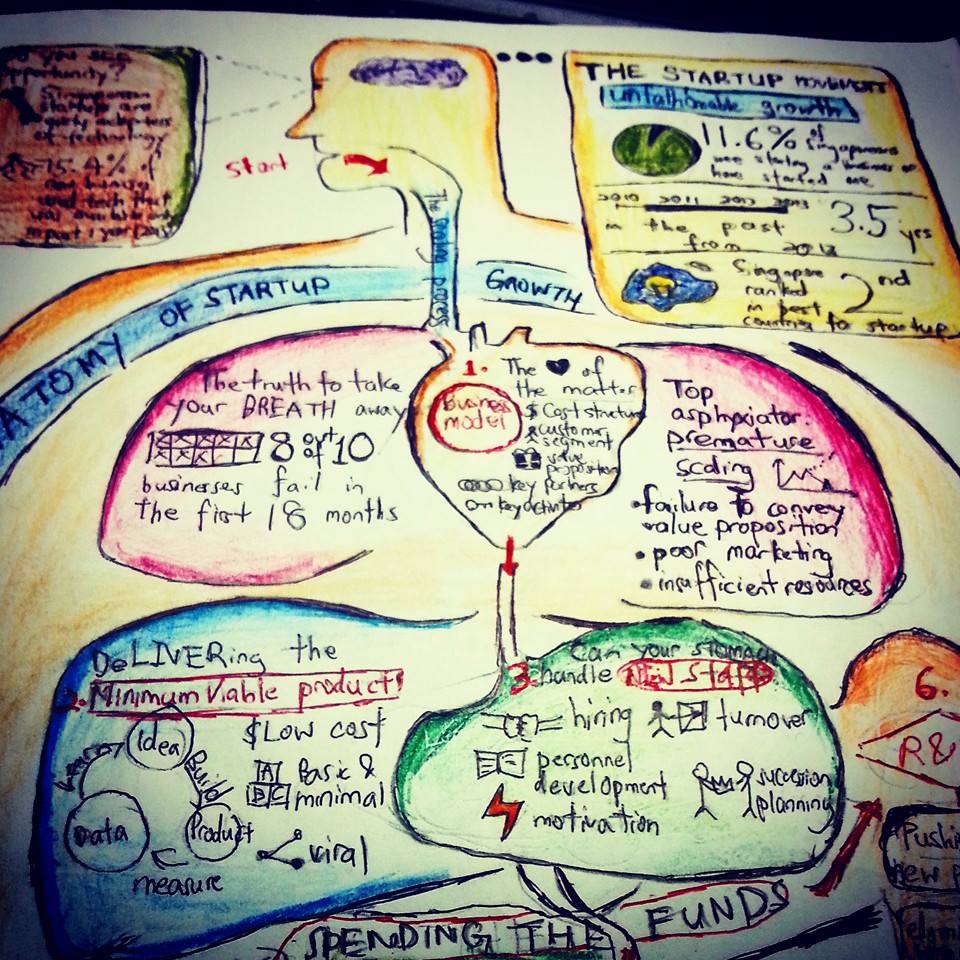 you see
opportunity?
Singaporean
startups are
early adopters
of technology
15.4% of
start
THE STARTUP MOVEMENT
unfathomable growth
11.6% of
Singaporeans
were starting a business or
have started one
2010 2011 2012 2013
in the past 3.5 yrs
from 2013
Singapore
ranked 2nd
in best
countries to startup
The Growing process
ATOMY OF STARTUP GROWTH
The truth to take
your BREATH away
8 of 10
businesses fail in
the first 18 months
1. The ♥ of
the matter
Business
model
$ Cost structure
customer
segment
value
proposition
key partners
key activities
Top
asphyxiator:
premature
scaling
• failure to convey
value proposition
• poor marketing
• insufficient resources
DeLIVERing the
2. Minimum Viable product!
Idea
Build
Product
measure
Data
Learn
$ Low cost
A
B C
Basic &
minimal
viral
Can your STOMACH
3. handle New Staff
hiring
turnover
personnel
development
succession
planning
motivation
SPENDING THE FUNDS
6.
R&
Pushi
new p